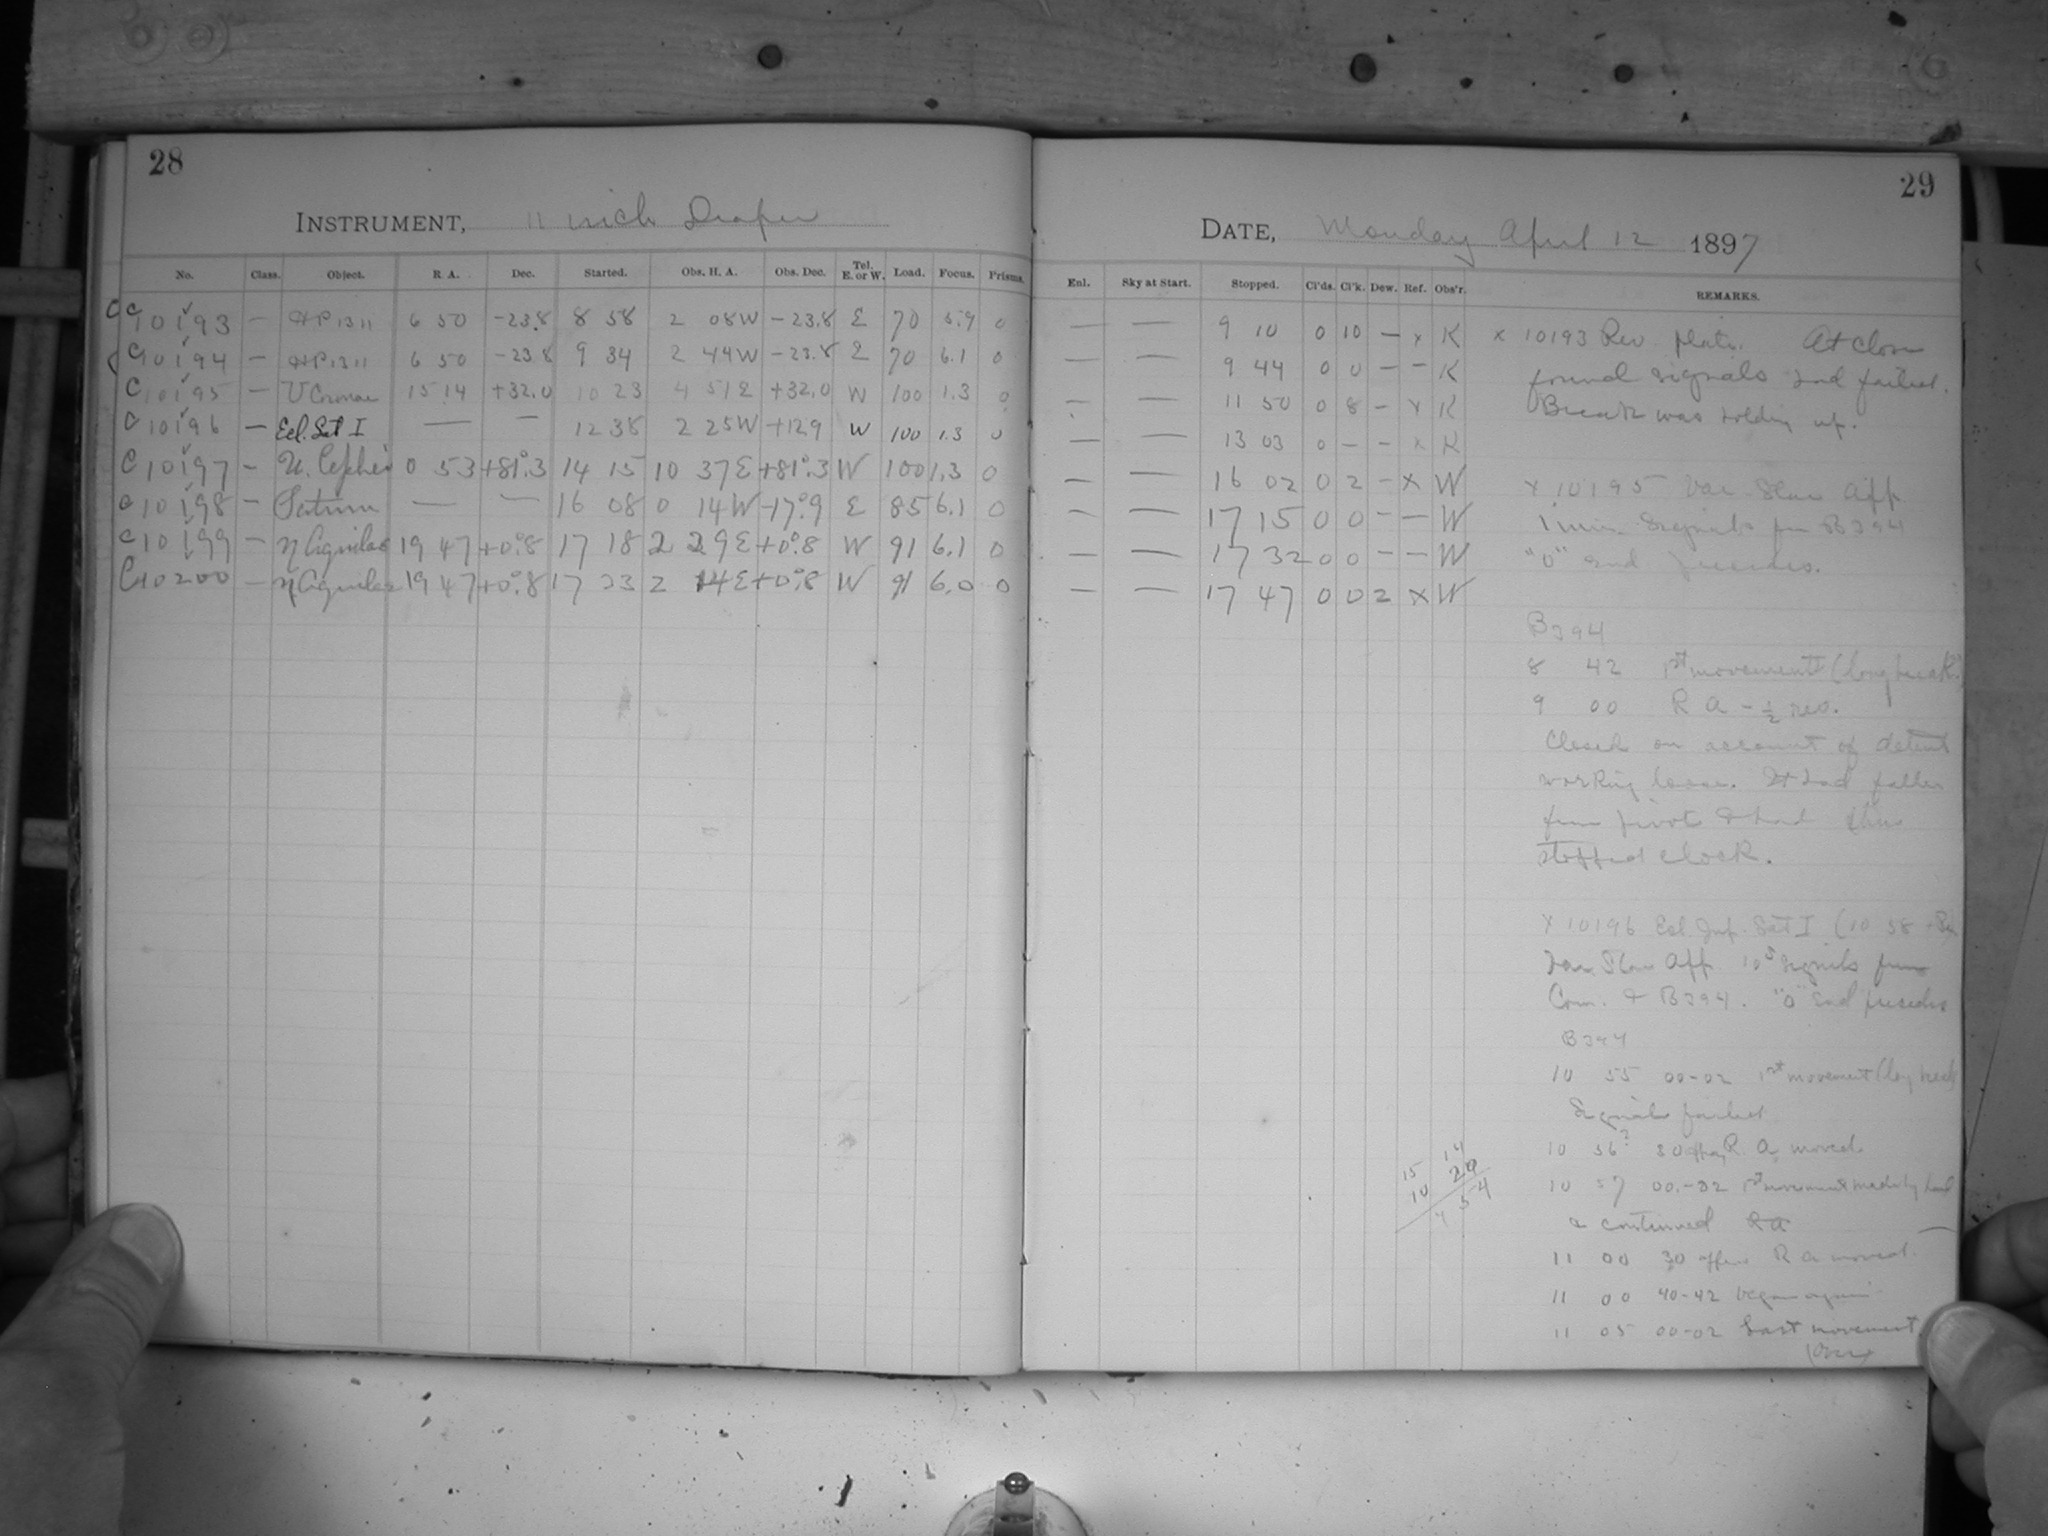 28
INSTRUMENT, 11 inch Draper
No. Class. Object. R. A. Dec. Started. Obs. H. A. Obs. Dec. Tel. E. or W. Load. Focus. Prisms.
C 10193 — HP 1311 6 50 -23.8 8 58 2 08W -23.8 E 70 5.9 0
C 10194 — HP 1311 6 50 -23.8 9 34 2 44W -23.8 E 70 6.1 0
C 10195 — U Coronae 15 14 +32.0 10 23 4 51E +32.0 W 100 1.3 0
C 10196 — Ecl. Sat I — — 12 38 2 25W +12.9 W 100 1.3 0
C 10197 — U. Cephei 0 53 +81°.3 14 15 10 37E +81°.3 W 100 1.3 0
C 10198 — Saturn — — 16 08 0 14W -17°.9 E 85 6.1 0
C 10199 — η Aquilae 19 47 +0°.8 17 18 2 29E +0°.8 W 91 6.1 0
C 10200 — η Aquilae 19 47 +0°.8 17 33 2 14E +0°.8 W 91 6.0 0
29
DATE, Monday April 12 1897
Enl. Sky at Start. Stopped. Cl'ds. Cl'k. Dew. Ref. Obs'r. REMARKS.
— — 9 10 0 10 — x K x 10193 Rev. plate. At close
— — 9 44 0 0 — — K found signals had failed.
— — 11 50 0 8 — x K Break was holding up.
— — 13 03 0 — — x K
— — 16 02 0 2 — x W x 10195 Var. Star App.
— — 17 15 0 0 — — W 1 min. Signals from B394
— — 17 32 0 0 — — W "0" end precedes.
— — 17 47 0 0 2 x W
B394
8 42 1st movement (long break)
9 00 R A - ½ rev.
Closed on account of detent
working loose. It had fallen
from pivot & had thus
stopped clock.
x 10196 Ecl. Jup. Sat I (10 58
Var. Star App. 10s signals from
Com. & B394. "0" end precedes
B394
10 55 00-02 1st movement (long break
Signals failed
10 56? 30 R. A. moved
10 57 00-02 1st movement
& continued R A
11 00 30 R A moved.
11 00 40-42 began again
11 05 00-02 Last movement
(Over)
15 14
10 20
4 54